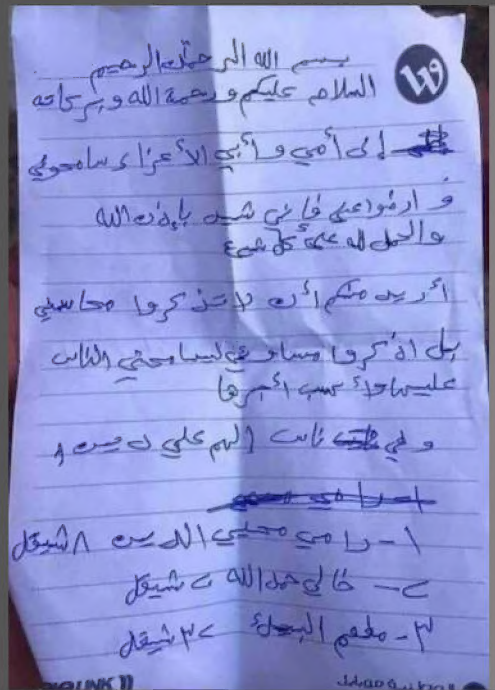 بسم الله الرحمن الرحيم
السلام عليكم ورحمة الله وبركاته
إلى أمي وأبي الأعزاء سامحوني
وارضوا عني فإني شهيد بإذن الله
والحمد لله على كل شيء
أريد منكم أن لا تذكروا محاسني
بل اذكروا مساوئي ليسامحني الناس
عليها وأكسب أجرها
وفي ناس الهم علي دين
١- رامي محيي الدين ٨ شيقل
٢- خالي حمد الله ٢ شيقل
٣- مطعم ٣٢ شيقل